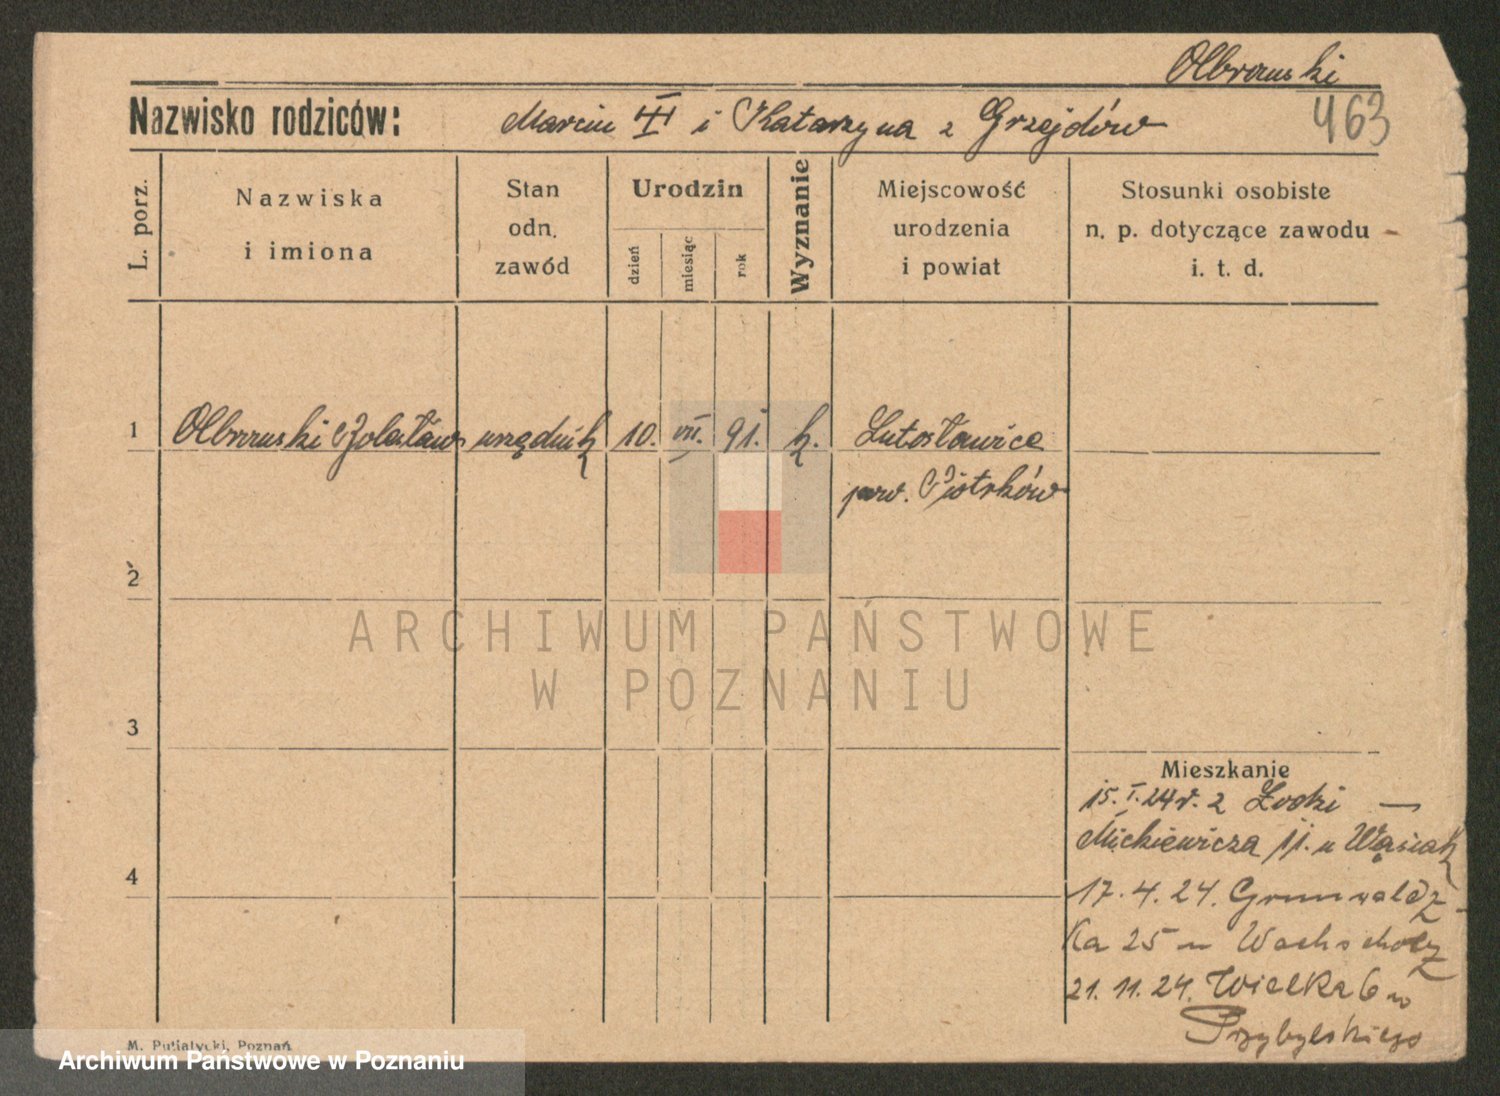 Olbromski
463
Nazwisko rodziców: Marcin i Katarzyna z Grzejdów
L. porz.
Nazwiska
i imiona
Stan
odn.
zawód
Urodzin
dzień
miesiąc
rok
Wyznanie
Miejscowość
urodzenia
i powiat
Stosunki osobiste
n. p. dotyczące zawodu
i. t. d.
1 Olbromski urzędnik 10. VII. 91. k. Lutosławice
pow. Piotrków
2
ARCHIWUM PAŃSTWOWE
W POZNANIU
3
Mieszkanie
15. I. 24 r. z Łodzi —
Mickiewicza 11. u Wąsiak
4
17. 4. 24. Grunwaldz-
ka 25 u
21. 11. 24. Wielka 6 u
Przybylskiego
M. Putiatycki, Poznań
Archiwum Państwowe w Poznaniu